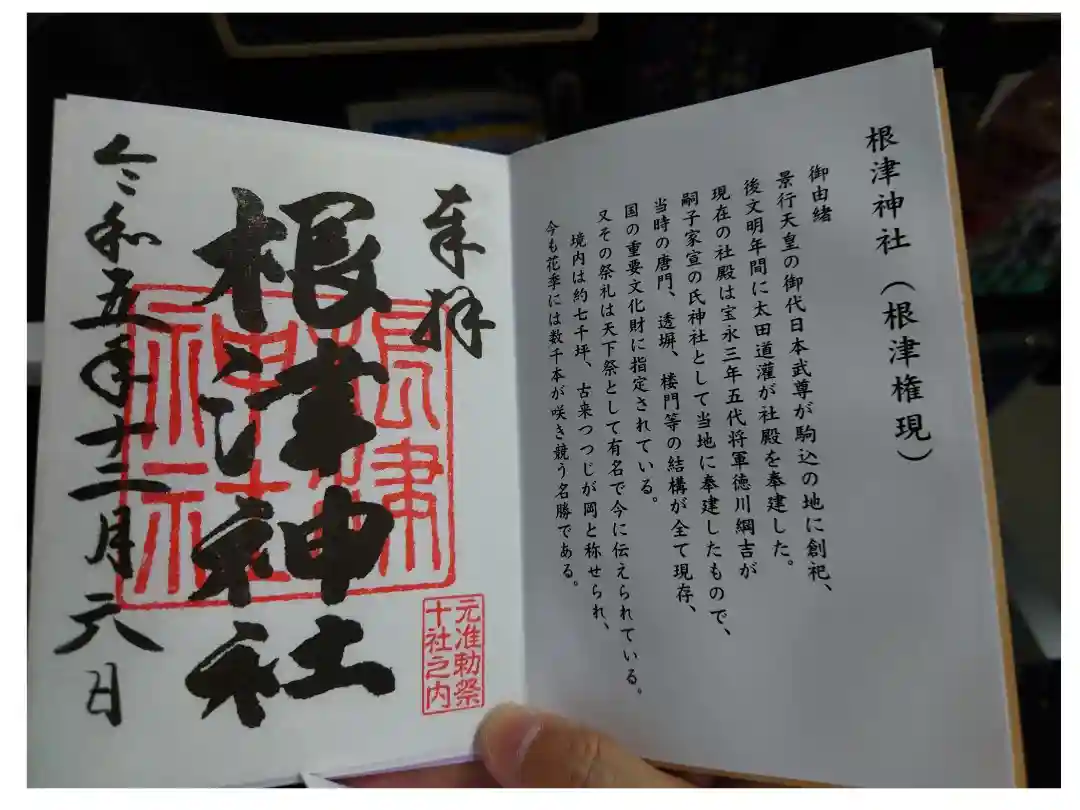 根津神社(根津権現)
御由緒
景行天皇の御代日本武尊が駒込の地に創祀、
後文明年間に太田道灌が社殿を奉建した。
現在の社殿は宝永三年五代将軍徳川綱吉が
嗣子家宣の氏神社として当地に奉建したもので、
当時の唐門、透塀、楼門等の結構が全て現存、
国の重要文化財に指定されている。
又その祭礼は天下祭として有名で今に伝えられている。
境内は約七千坪、古来つつじが岡と称せられ、
今も花季には数千本が咲き競う名勝である。
奉拝
根津神社
根津
神社
元准勅祭
十社之内
令和五年十二月六日